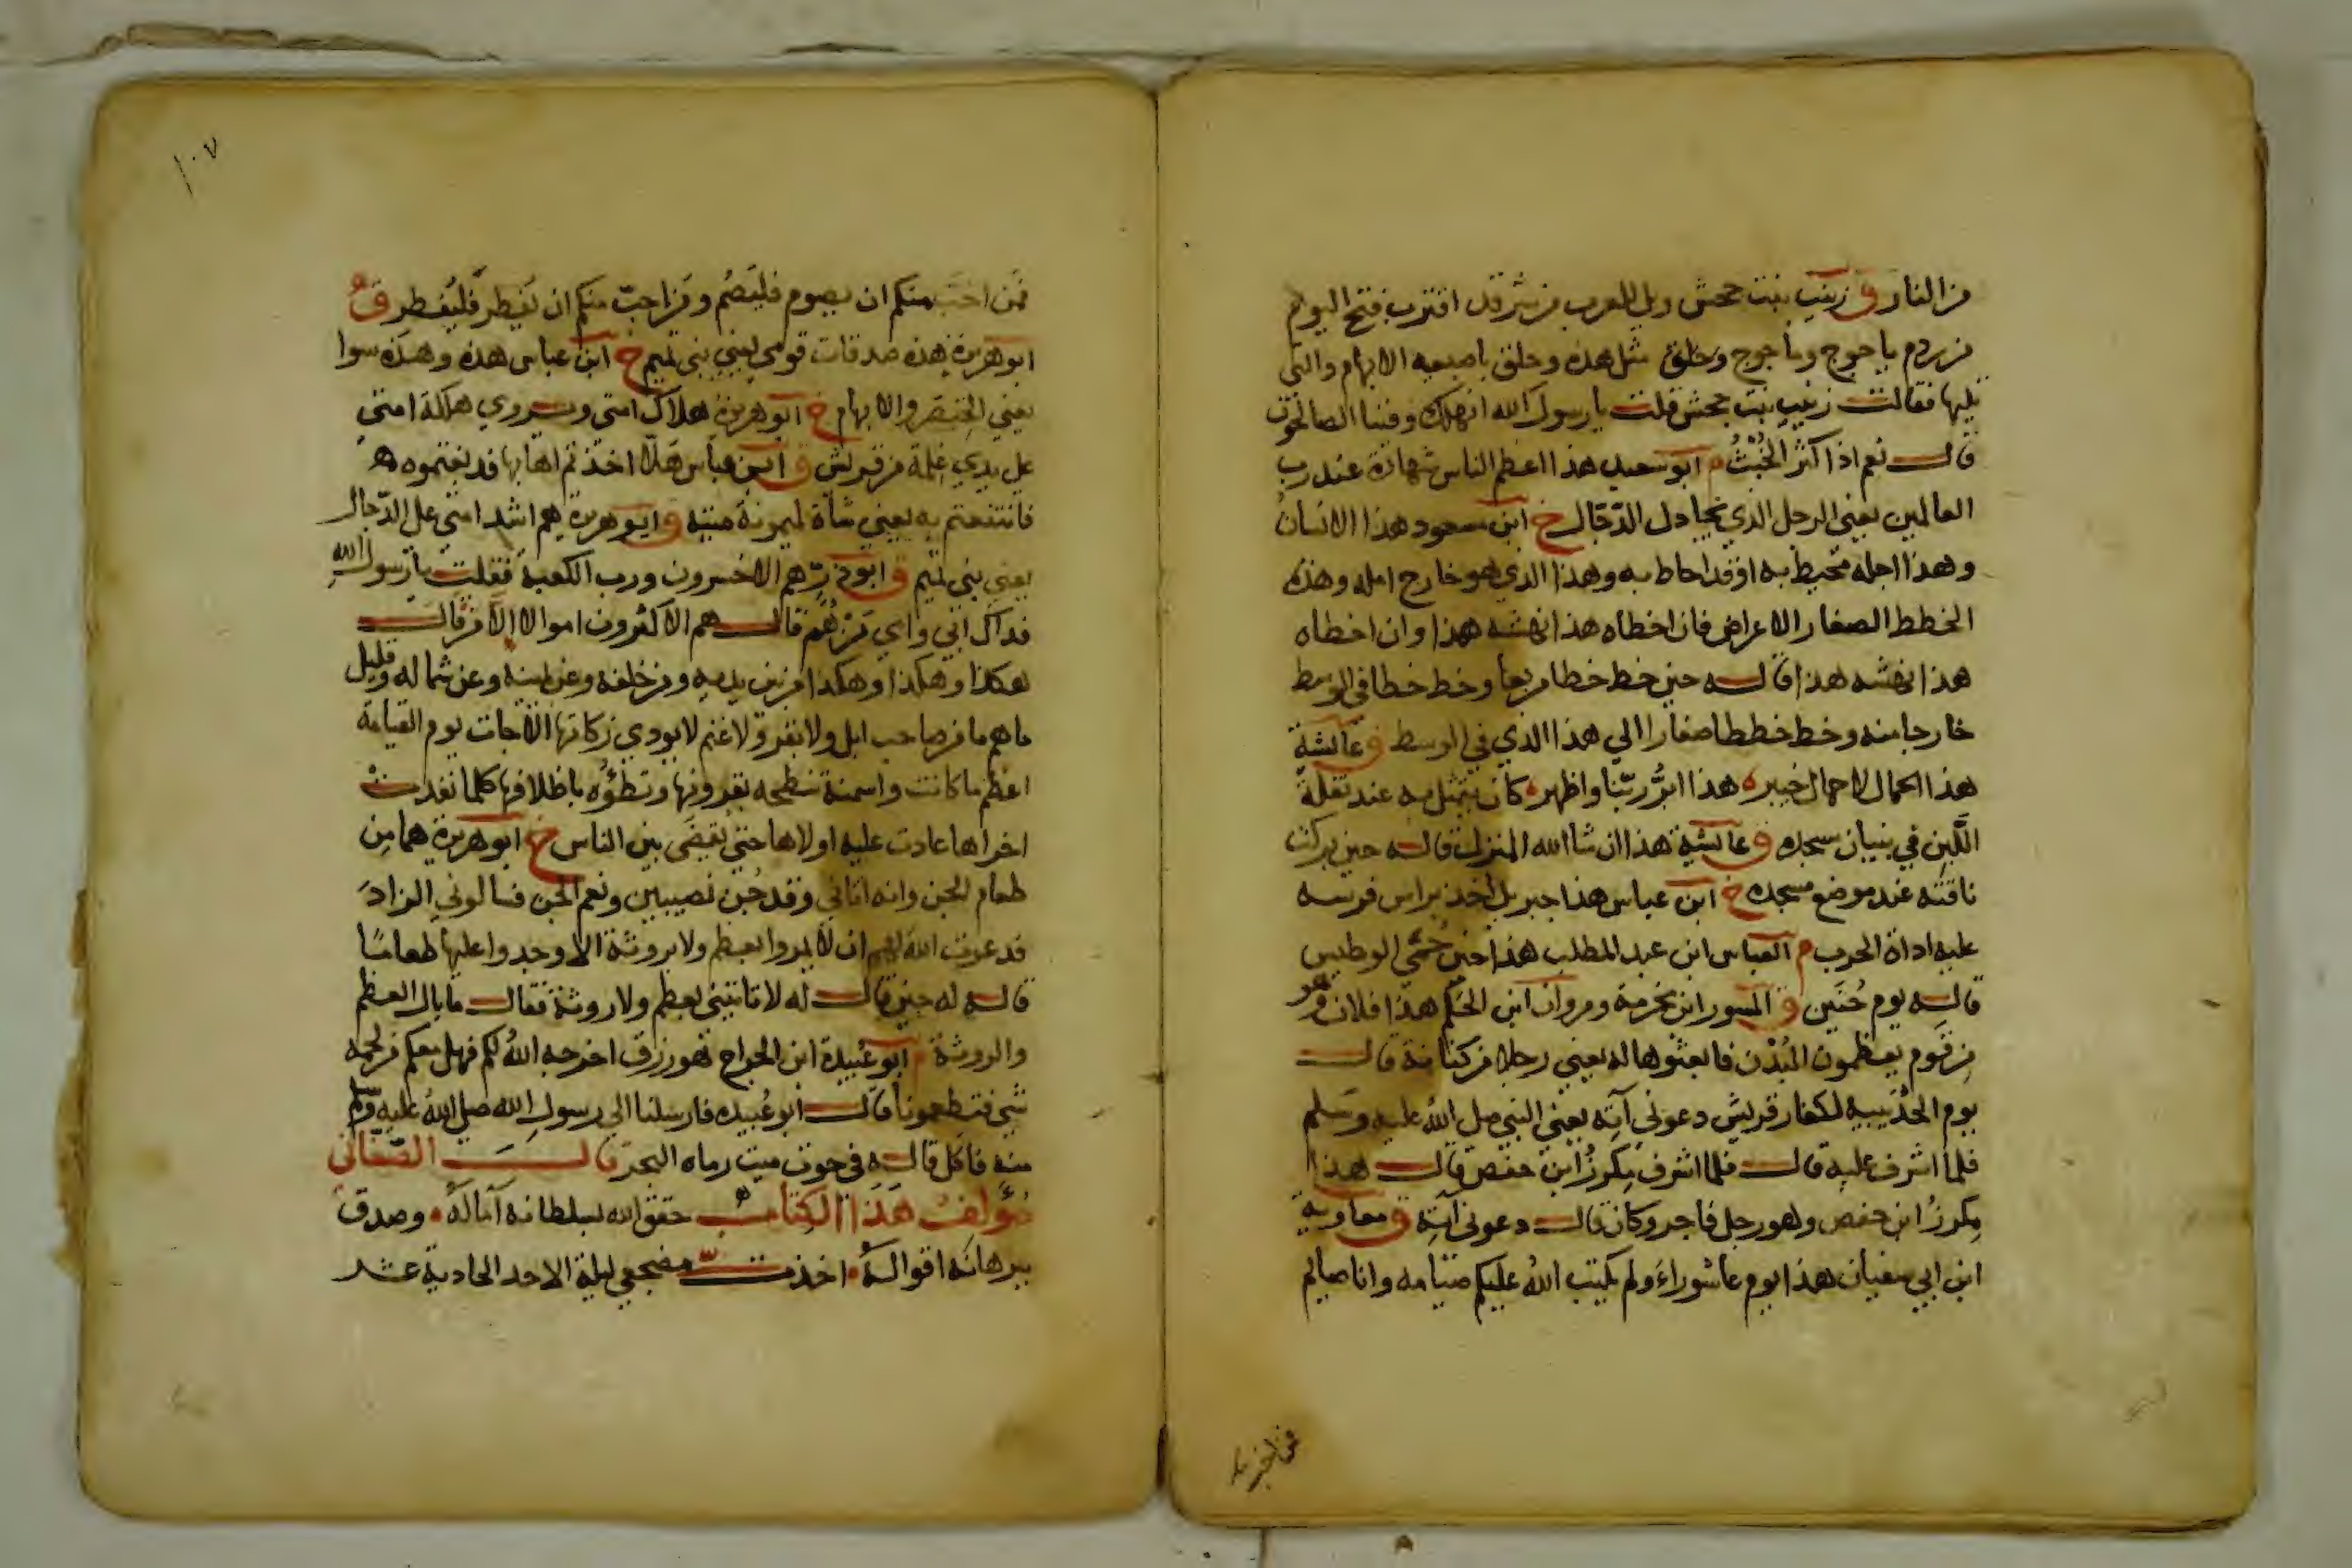 من النار ق زينب بنت جحش ويل للعرب من شر قد اقترب فتح اليوم
من ردم ياجوج وماجوج وحلق مثل هذه وحلق باصبعيه الابهام والتي
تليها فقالت زينب بنت جحش قلت يا رسول الله انهلك وفينا الصالحون
قال نعم اذا كثر الخُبْثُ م ابو سعيد هذا اعظم الناس شهادة عند رب
العالمين يعني الرجل الذي يجادل الدّجّال خ ابن مسعود هذا الانسانُ
وهذا اجله محيط به او قد احاط به وهذا الذي هو خارج امله وهذه
الخطط الصغار الاعراض فان اخطاه هذا نهشه هذا وان اخطاه
هذا نهشه هذا قاله حين خط خطا مربعا وخط خطا في الوسط
خارجا منه وخط خططا صغارا الي هذا الذي في الوسط ق عائشة
هذا الحمال لا حمال خيبره هذا ابرُّ ربّنا واظهره كان يتمثل به عند نقلة
اللَّبِن في بنيان مسجده ق عائشة هذا ان شا الله المنزل قاله حين بركت
ناقته عند موضع مسجده خ ابن عباس هذا جبريل اخذ براس فرسه
عليه اداة الحرب م العباس ابن عبد المطلب هذا حين حُمّي الوطيس
قاله يوم حُنَين ق المسور ابن مخرمة ومروان ابن الحَكَم هذا فلان وهو
مِن قَوم يعظمون البُدْن فابعثوها له يعني رجلا من كنانة قال
يوم الحُدَيبية لكفار قريش دعوني آته يعني النبي صلي اللهُ عليه وسلم
فلما اشرف عليه قال فلما اشرف مِكرزُ ابن حفص قال هذا
مِكرزُ ابن حفص وهو رجل فاجر وكان قال دعوني آته ق معاوية
ابن ابي سفيان هذا يوم عاشوراءَ ولم يكتب اللهُ عليكم صيَامه وانا صايم
فمن احب
١٠٧
فمَن احَبّ منكم ان يصوم فليَصُم ومَن احبّ منكم ان يُفطِر فليُفطِر ق
ابو هريرة هذه صدقات قومي يعني بني تميم خ ابن عباس هذه وهذه سوا
يعني الخِنصر والابهام خ ابو هريرة هلاك امتي ويروي هلكة امتي
علي يدي غِلمة من قريش ق ابن عباس هَلّا اخذتم اهابها فدبغتموه
فانتفعتم به يعني شاة لميمونة ميتة ق ابو هريرة هم اشد امتي علي الدّجال
يعني بني تميم ق ابو ذرّ هم الاخسرون ورب الكعبة فقلت يا رسول الله
فداك ابي وامي مَنْ هُم قال هم الاكثرون اموالا الا مَن قال
هكذا وهكذا وهكذا من بين يديه ومن خلفه وعن يمينه وعن شماله وقليل
ما هم ما من صاحب ابل ولا بقر ولا غنم لا يودي زكاتها الا جات يوم القيامة
اعظم ما كانت واسمنه تنطحه بقرونها وتطؤُه باظلافها كلما نفدتْ
اخراها عادت عليه اولاها حتي يُقضَي بين الناس خ ابو هريرة هما مِن
طعام الجن وانه اتاني وفد جُن نصيبين ونعم الجن فسالوني الزادَ
فدعوت الله لهم ان لا يمروا بعظم ولا بروثة الا وجدوا عليها طعامًا
قاله له حين قال له لا تاتيني بعظم ولا روثة فقال ما بال العظم
والروثة م ابو عُبيدة ابن الجراح هو رزق اخرجه اللهُ لكم فهل معكم من لحمه
شي فتطعمونا قال ابو عُبيده فارسلنا الي رسولِ الله صلي اللهُ عليه وسلم
منه فاكل قاله في حوت ميت رماه البحر قال الصّغاني
مؤلف هَذَا الكِتاب حقق الله بسلطانه آماله، وصدق
ببرهانه اقواله، اخذت مضجعي ليلة الاحد الحادية عشر